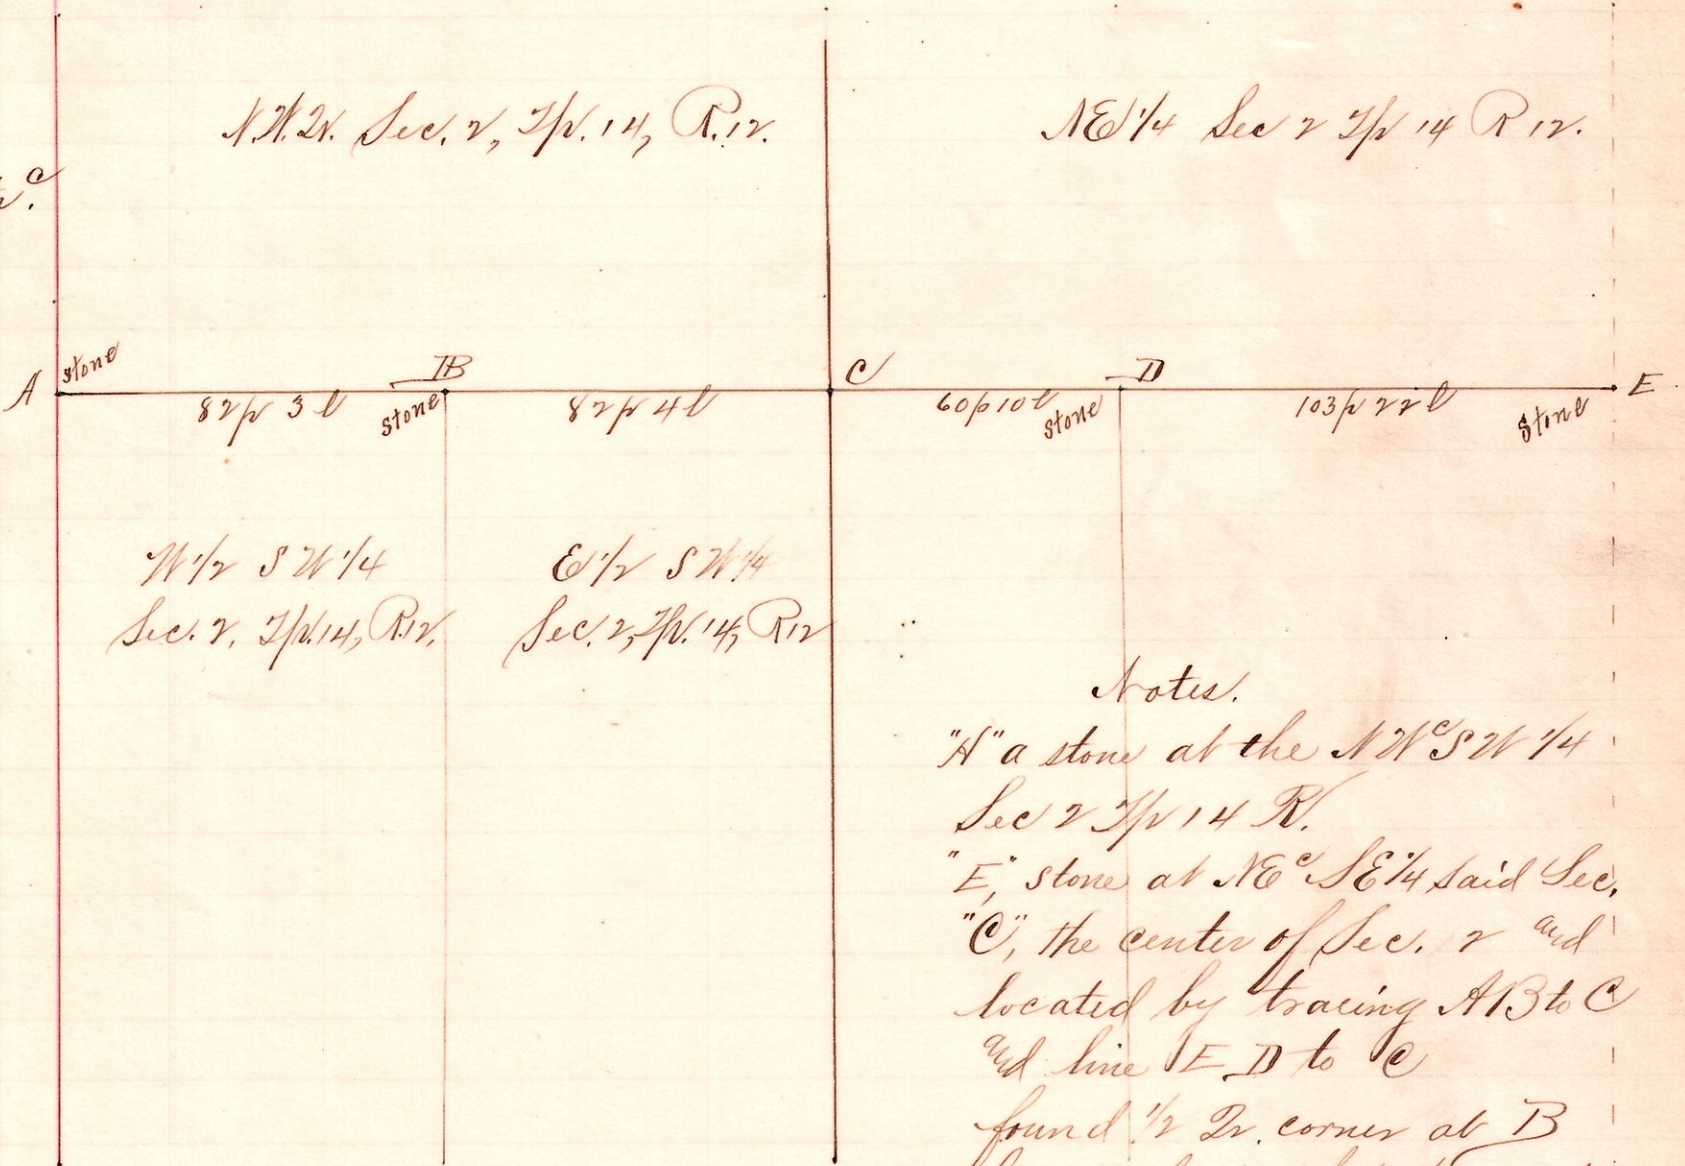 N.W. Qr. Sec. 2, Tp. 14, R. 12.
NE 1/4 Sec 2 Tp 14 R 12.
c
A stone B C D E
82p 3 l stone 82p 4 l 60p 10 l stone 103p 22 l stone
W 1/2 S W 1/4
Sec. 2, Tp. 14, R. 12.
E 1/2 S W 1/4
Sec. 2, Tp. 14, R 12
Notes.
"A" a stone at the N W c S W 1/4
Sec 2 Tp 14 R.
"E," stone at NE c SE 1/4 said Sec,
"C", the center of Sec. 2 and
located by tracing A B to C
and line E D to C
found 1/2 Qr. corner at B